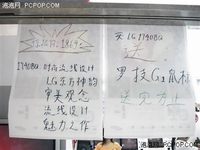 泡泡网 PCPOP.COM
1740BQ 时尚流线设计
LG东方神韵
审美观念
流线设计
魅力之作
买 LG 1740BQ
送
罗技G1鼠标
送完为止
泡泡网 PCPOP.COM